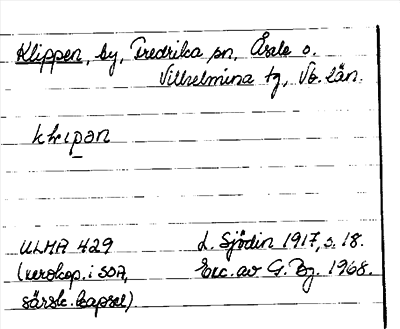 Klippen, by, Fredrika sn, Åsele o.
Vilhelmina tg, Vb. län.
ULMA 429
L. Sjödin 1917, s. 18.
(xerokop. i SOA,
Exc. av G. Bg. 1968.
särsk. kapsel)